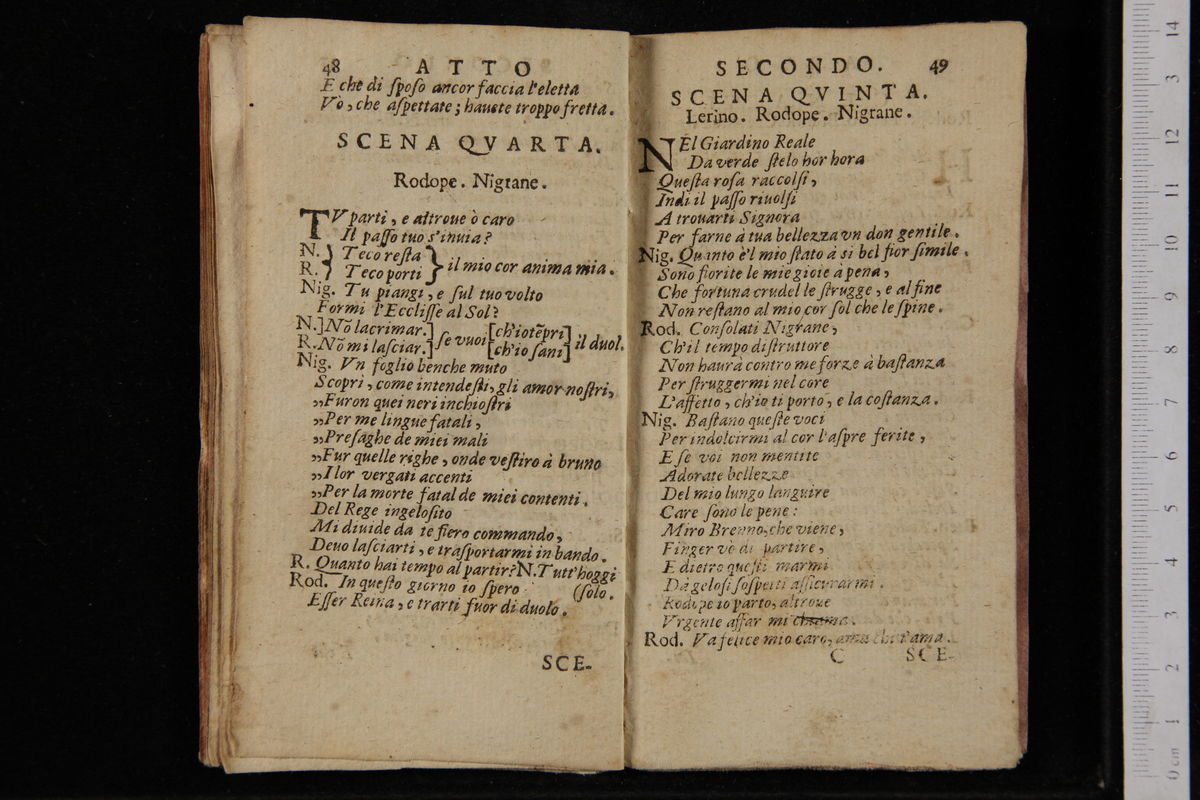 48 ATTO
E che di sposo ancor faccia l'eletta
Vò, che aspettate; haucte troppo fretta.
SCENA QVARTA.
Rodope. Nigrane.
TV parti, e altroue ò caro
Il passo tuo s'inuia?
N.} Teco resta } il mio cor anima mia.
R.} Teco porti
Nig. Tu piangi, e sul tuo volto
Formi l'Ecclisse al Sol?
N.]Nõ lacrimar.] se vuoi [ch'iotẽpri] il duol.
R.Nõ mi lasciar.] [ch'io sani]
Nig. Vn foglio benche muto
Scoprì, come intendesti, gli amor nostri,
„Furon quei neri inchiostri
„Per me lingue fatali,
„Presaghe de miei mali
„Fur quelle righe, onde vestiro à bruno
„I lor vergati accenti
„Per la morte fatal de miei contenti.
Del Rege ingelosito
Mi diuide da te fiero commando,
Deuo lasciarti, e trasportarmi in bando.
R. Quanto hai tempo al partir? N. Tutt'hoggi
(solo.
Rod. In questo giorno io spero
Esser Reina, e trarti fuor di duolo.
SCE-
SECONDO. 49
SCENA QVINTA.
Lerino. Rodope. Nigrane.
NEl Giardino Reale
Da verde stelo hor hora
Questa rosa raccolsi,
Indi il passo riuolsi
A trouarti Signora
Per farne à tua bellezza vn don gentile.
Nig. Quanto è'l mio stato à si bel fior simile.
Sono fiorite le mie gioie à pena,
Che fortuna crudel le strugge, e al fine
Non restano al mio cor sol che le spine.
Rod. Consolati Nigrane,
Ch'il tempo distruttore
Non haurà contro me forze à bastanza
Per struggermi nel core
L'affetto, ch'io ti porto, e la costanza.
Nig. Bastano queste voci
Per indolcirmi al cor l'aspre ferite,
E se voi non mentite
Adorate bellezze
Del mio lungo languire
Care sono le pene:
Miro Brenno, che viene,
Finger vò di partire,
E dietro questi marmi
Da gelosi sospetti assicurarmi.
Rodope io parto, altroue
Vrgente affar mi chiama.
Rod. Va felice mio caro, ama chi t'ama.
C SCE-